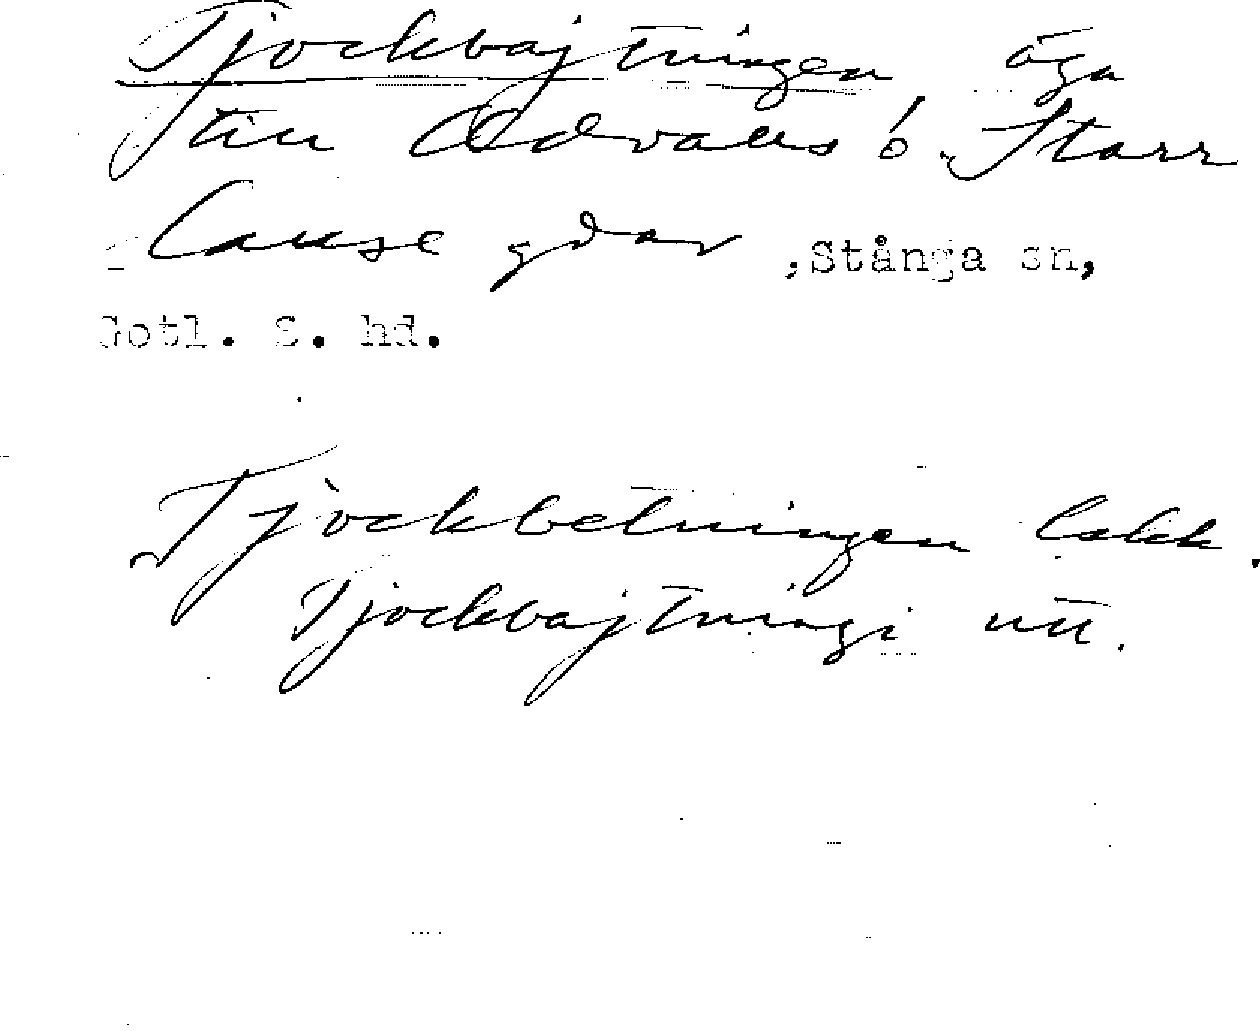 Tjockbajtningen äga
till Odvalls o. Starr
lause gdar, Stånga sn,
Gotl. S. hd.
Tjockbetningen lokk.
Tjockbajtningi utt.